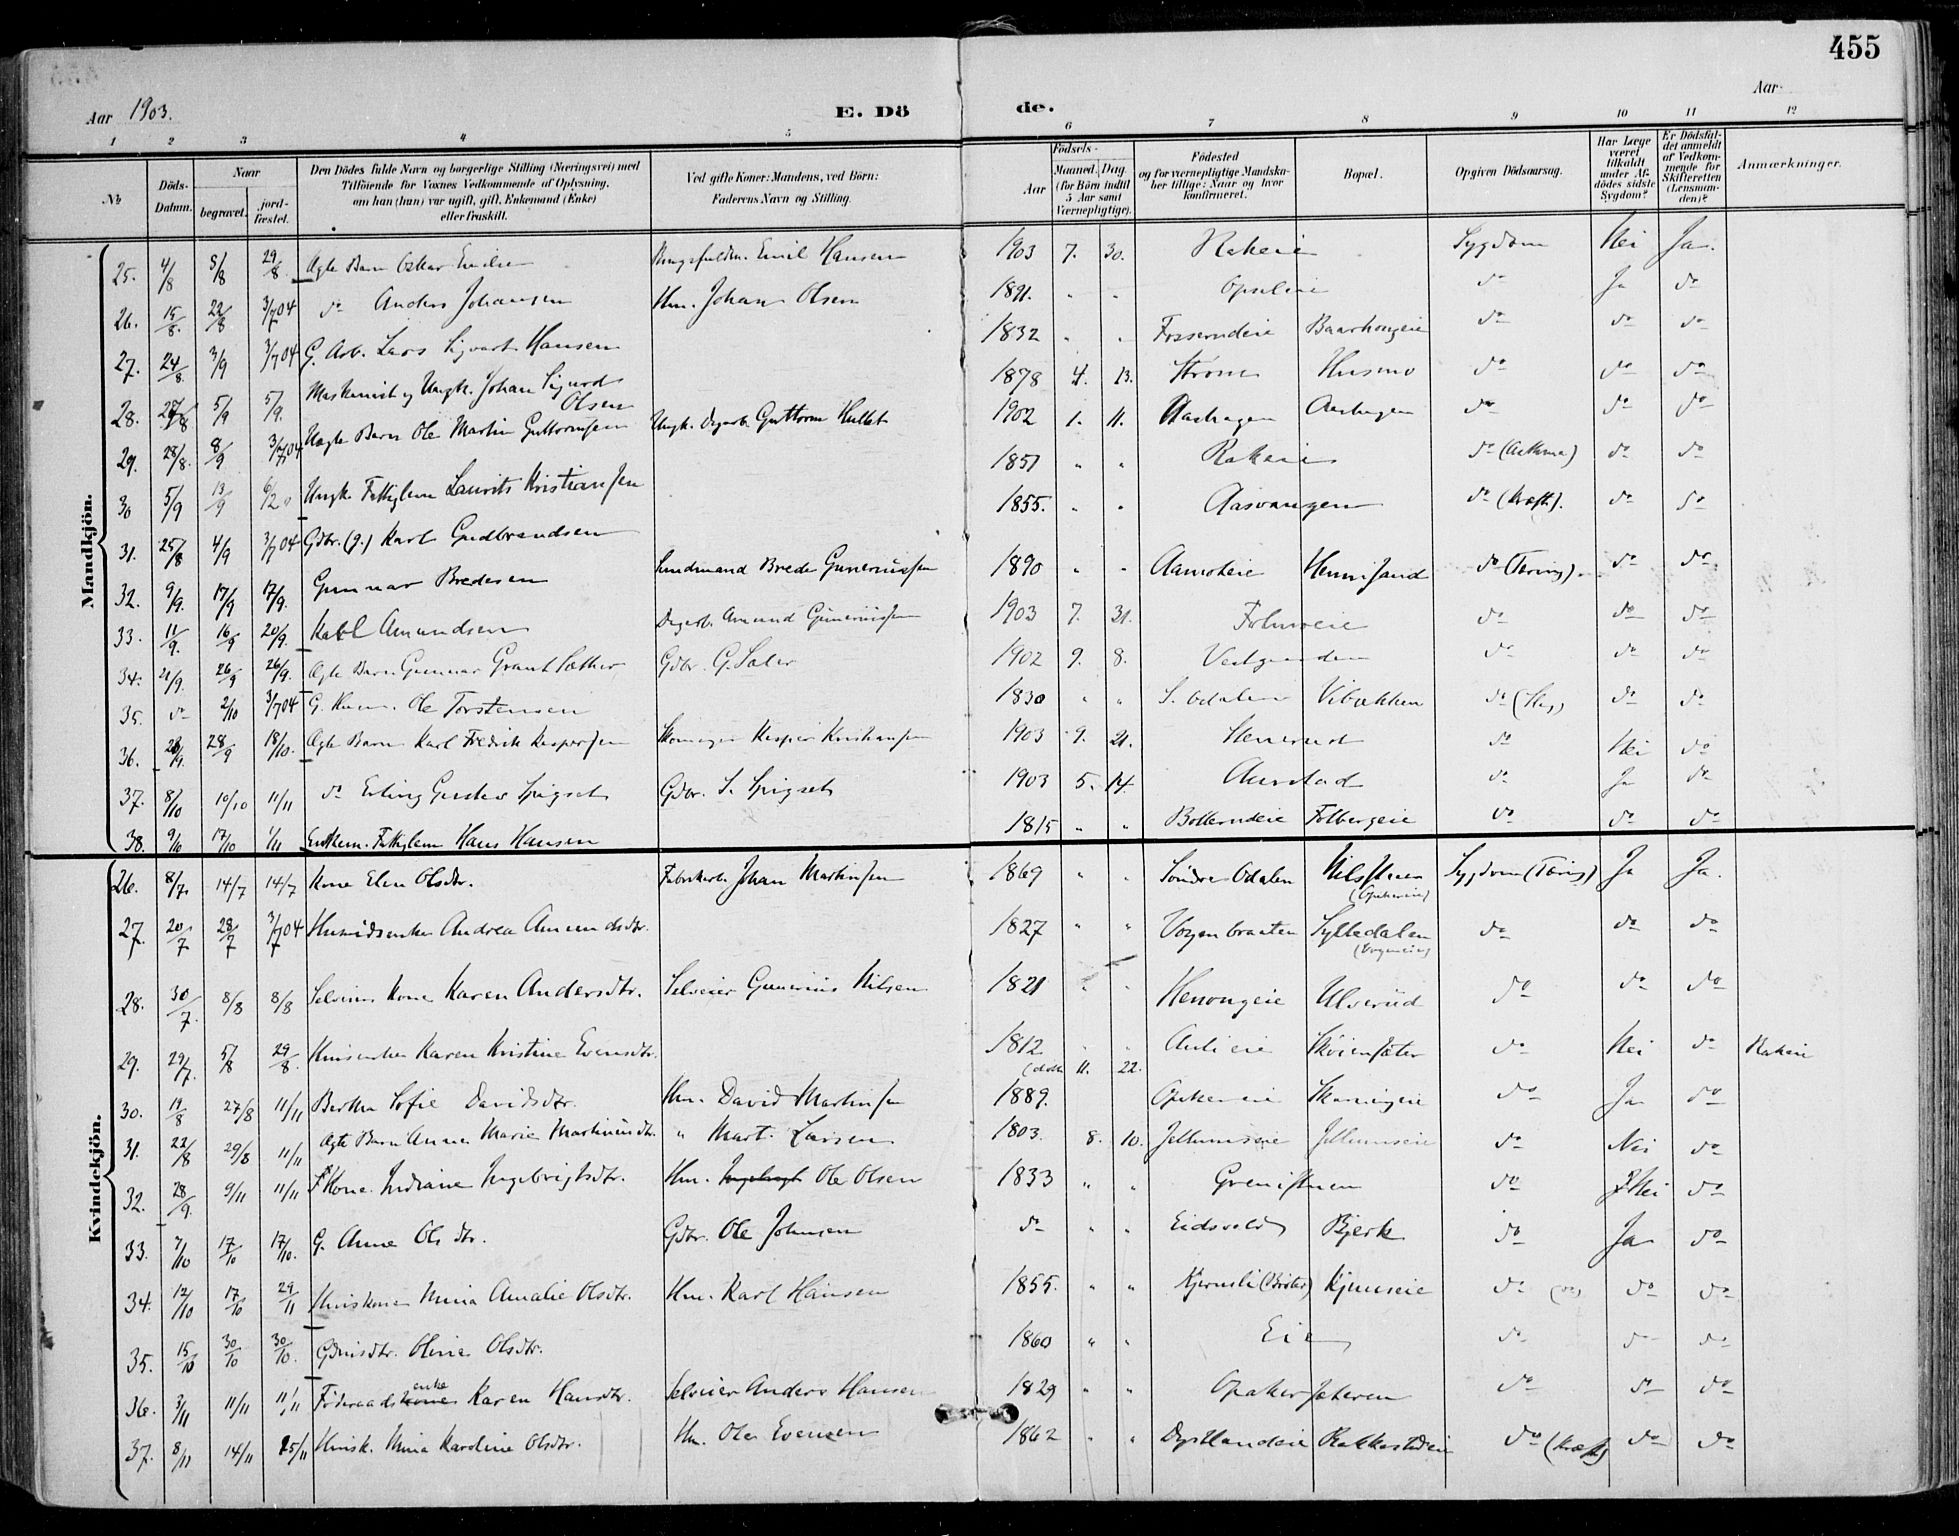 455
Aar 1903. E. Dö de. Aar
1 2 3 4 5 6 7 8 9 10 11 12
No. Döds-Datum. Naar begravet. jordfæstet. Den Dödes fulde Navn og borgerlige Stilling (Næringsvei) med Tilföiende for Voxnes Vedkommende af Oplysning, om han (hun) var ugift, gift, Enkemand (Enke) eller fraskilt. Ved gifte Koner: Mandens, ved Börn: Faderens Navn og Stilling. Födsels- Aar Maaned. Dag (for Börn indtil 5 Aar samt Værnepligtige). Födested og for værnepligtige Mandskaber tillige: Naar og hvor konfirmeret. Bopæl. Opgiven Dödsaarsag. Har Læge været tilkaldt under Afdödes sidste Sygdom? Er Dödsfaldet anmeldt af Vedkommende for Skifteretten (Lensmanden)? Anmærkninger.
Mandkjön.
25. 4/8 8/8 29/8 Ægte Barn Oskar Emilsen Emil Hansen 1903 7. 30. Rakeie Sygdom Nei Ja.
26. 15/8. 22/8 3/7 04 do Anders Johansen Hm. Johan Olsen 1891. " " do Ja do
27. 24/8. 3/9 3/7 04 G. Arb. Lars Sigvart Hansen 1832 " " Fosserudeie Baarhougeie do do do
28. 27/8 5/9 5/9. Maskinist og Ungk. Johan Sigurd Olsen 1878 4. 13. Strøm Husmo do do do
29. 28/8. 8/9 3/7 04 Uægte Barn Ole Martin Guttormsen Ungk. Dagarb. Guttorm Hullet 1902 1. 11. Aashagen Aashagen do do do
30 5/9 13/9 6/2 Ungk. Fattiglem Laurits Kristiansen 1851 " " Rakeie do (Asthma) do do
31. 25/8 4/9 3/7 04 Gdbr. (g.) Karl Gudbrandsen 1855. " " Aasvangen do (Kræft). do do
32. 9/9. 17/9 17/9. Gunnar Bredesen Brede Gunerussen 1890 " " Aamoteie do (Tæring). do do
33. 11/9. 16/9 20/9. Karl Amundsen Dagarb. Amund Gunerussen 1903 7. 31. do do do
34. 21/9. 26/9 26/9. Ægte Barn Gunnar Grant Sæther Gdbr. G. Sæter 1902 9. 8. Vestgaarden do do do
35. do 2/10 3/7 04 G. Husm. Ole Torstensen 1830 " " S. Odalen Vibækken do (Slag) do do
36. 26/9. 28/9 18/10. Ægte Barn Karl Fredrik Kaspersen Skomager Kasper Kristiansen 1903 9. 21. Henerud do Nei do
37. 8/10 10/10 11/11 do Erling Gustav Spigset Gdbr. S. Spigset 1903 5. 14. Aurstad do Ja do
38. 9/10 17/10 1/11 Enkem. Fattiglem Hans Hansen 1815 " " Bolterudeie Folbergeie do do do
Kvindekjön.
26. 8/7. 14/7 14/7 Kone Elen Olsdtr. Fabrikarb. Johan Martinsen 1869 " " Söndre Odalen Nilsstuen Sygdom (Tæring) Ja Ja.
27. 20/7 28/7 3/7 04 Husmdsenke Andrea Amundsdtr. 1827 " " Vogenbraaten Syltedalen do do do
28. 30/7. 8/8 8/8 Selveiers Kone Karen Andersdtr. Selveier Gunerius Nilsen 1821 " " Henongeie Ulverud do do do
29. 29/7. 5/8 29/8. Husmenke Karen Kristine Evensdtr. 1812 11. 22. Aulieie Skoiensæter do Nei do Rakeie
30. 19/8 27/8 11/11 Berthe Sofie Davidsdtr. Hm. David Martinsen 1889. Opakereie do Ja do
31. 22/8 29/8 11/11 Ægte Barn Anna Marie Martinusdtr. " Mart. Larsen 1803. 8. 10. Jellumseie Jellumseie do Nei do
32. 28/9. 9/11 11/11 Kone Indiane Ingebrigtsdtr. Hm. Ingebrigt Ole Olsen 1833 " " Grenistuen do Nei do
33. 7/10 17/10 17/10. G. Anne Olsdtr. Gdbr. Ole Johnsen do " " Eidsvold Bjerk do Ja do
34. 12/10 17/10 29/11 Huuskone Mina Amalie Olsdtr. Hm. Karl Hansen 1855. " " Kjernsli do (do) do do
35. 15/10 30/10 30/10. Oline Olsdtr. 1860 " " Eie do do do
36. 3/11 11/11 11/11 Föderaadskone enke Karen Hansdtr. Selveier Anders Hansen 1829 " " Opakersæteren do do do
37. 8/11 14/11 25/11 Husk. Mina Karoline Olsdtr. Hm. Ole Evensen 1862 " " Dystlandeie Rakkestadeie do (Kræft) do do